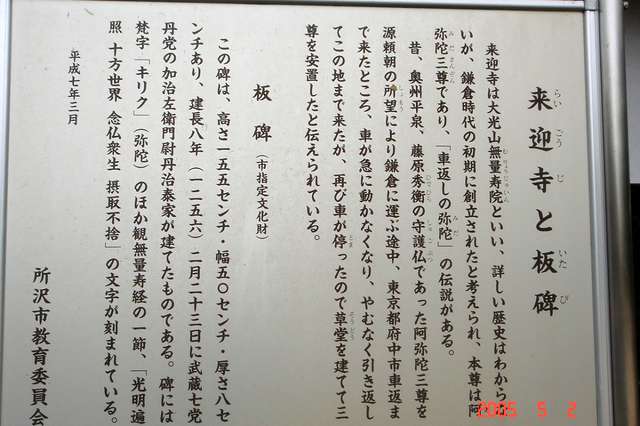 来迎寺と板碑
らいごうじ
いたび
来迎寺は大光山無量寿院といい、詳しい歴史はわからな
むりょうじゅいん
いが、鎌倉時代の初期に創立されたと考えられ、本尊は阿
弥陀三尊であり、「車返しの弥陀」の伝説がある。
みださんぞん
みだ
昔、奥州平泉、藤原秀衡の守護仏であった阿弥陀三尊を
ひでひら
しゅごぶつ
源頼朝の所望により鎌倉に運ぶ途中、東京都府中市車返ま
しょもう
で来たところ、車が急に動かなくなり、やむなく引き返し
てこの地まで来たが、再び車が停ったので草堂を建てて三
とま
そうどう
尊を安置したと伝えられている。
板碑(市指定文化財)
この碑は、高さ一五五センチ・幅五〇センチ・厚さ八セ
ンチあり、建長八年(一二五六)二月二十三日に武蔵七党
丹党の加治左衛門尉丹治泰家が建てたものである。碑には
梵字「キリク」(弥陀)のほか観無量寿経の一節、「光明遍
照 十方世界 念仏衆生 摂取不捨」の文字が刻まれている。
平成七年三月
所沢市教育委員会
2005 5 2